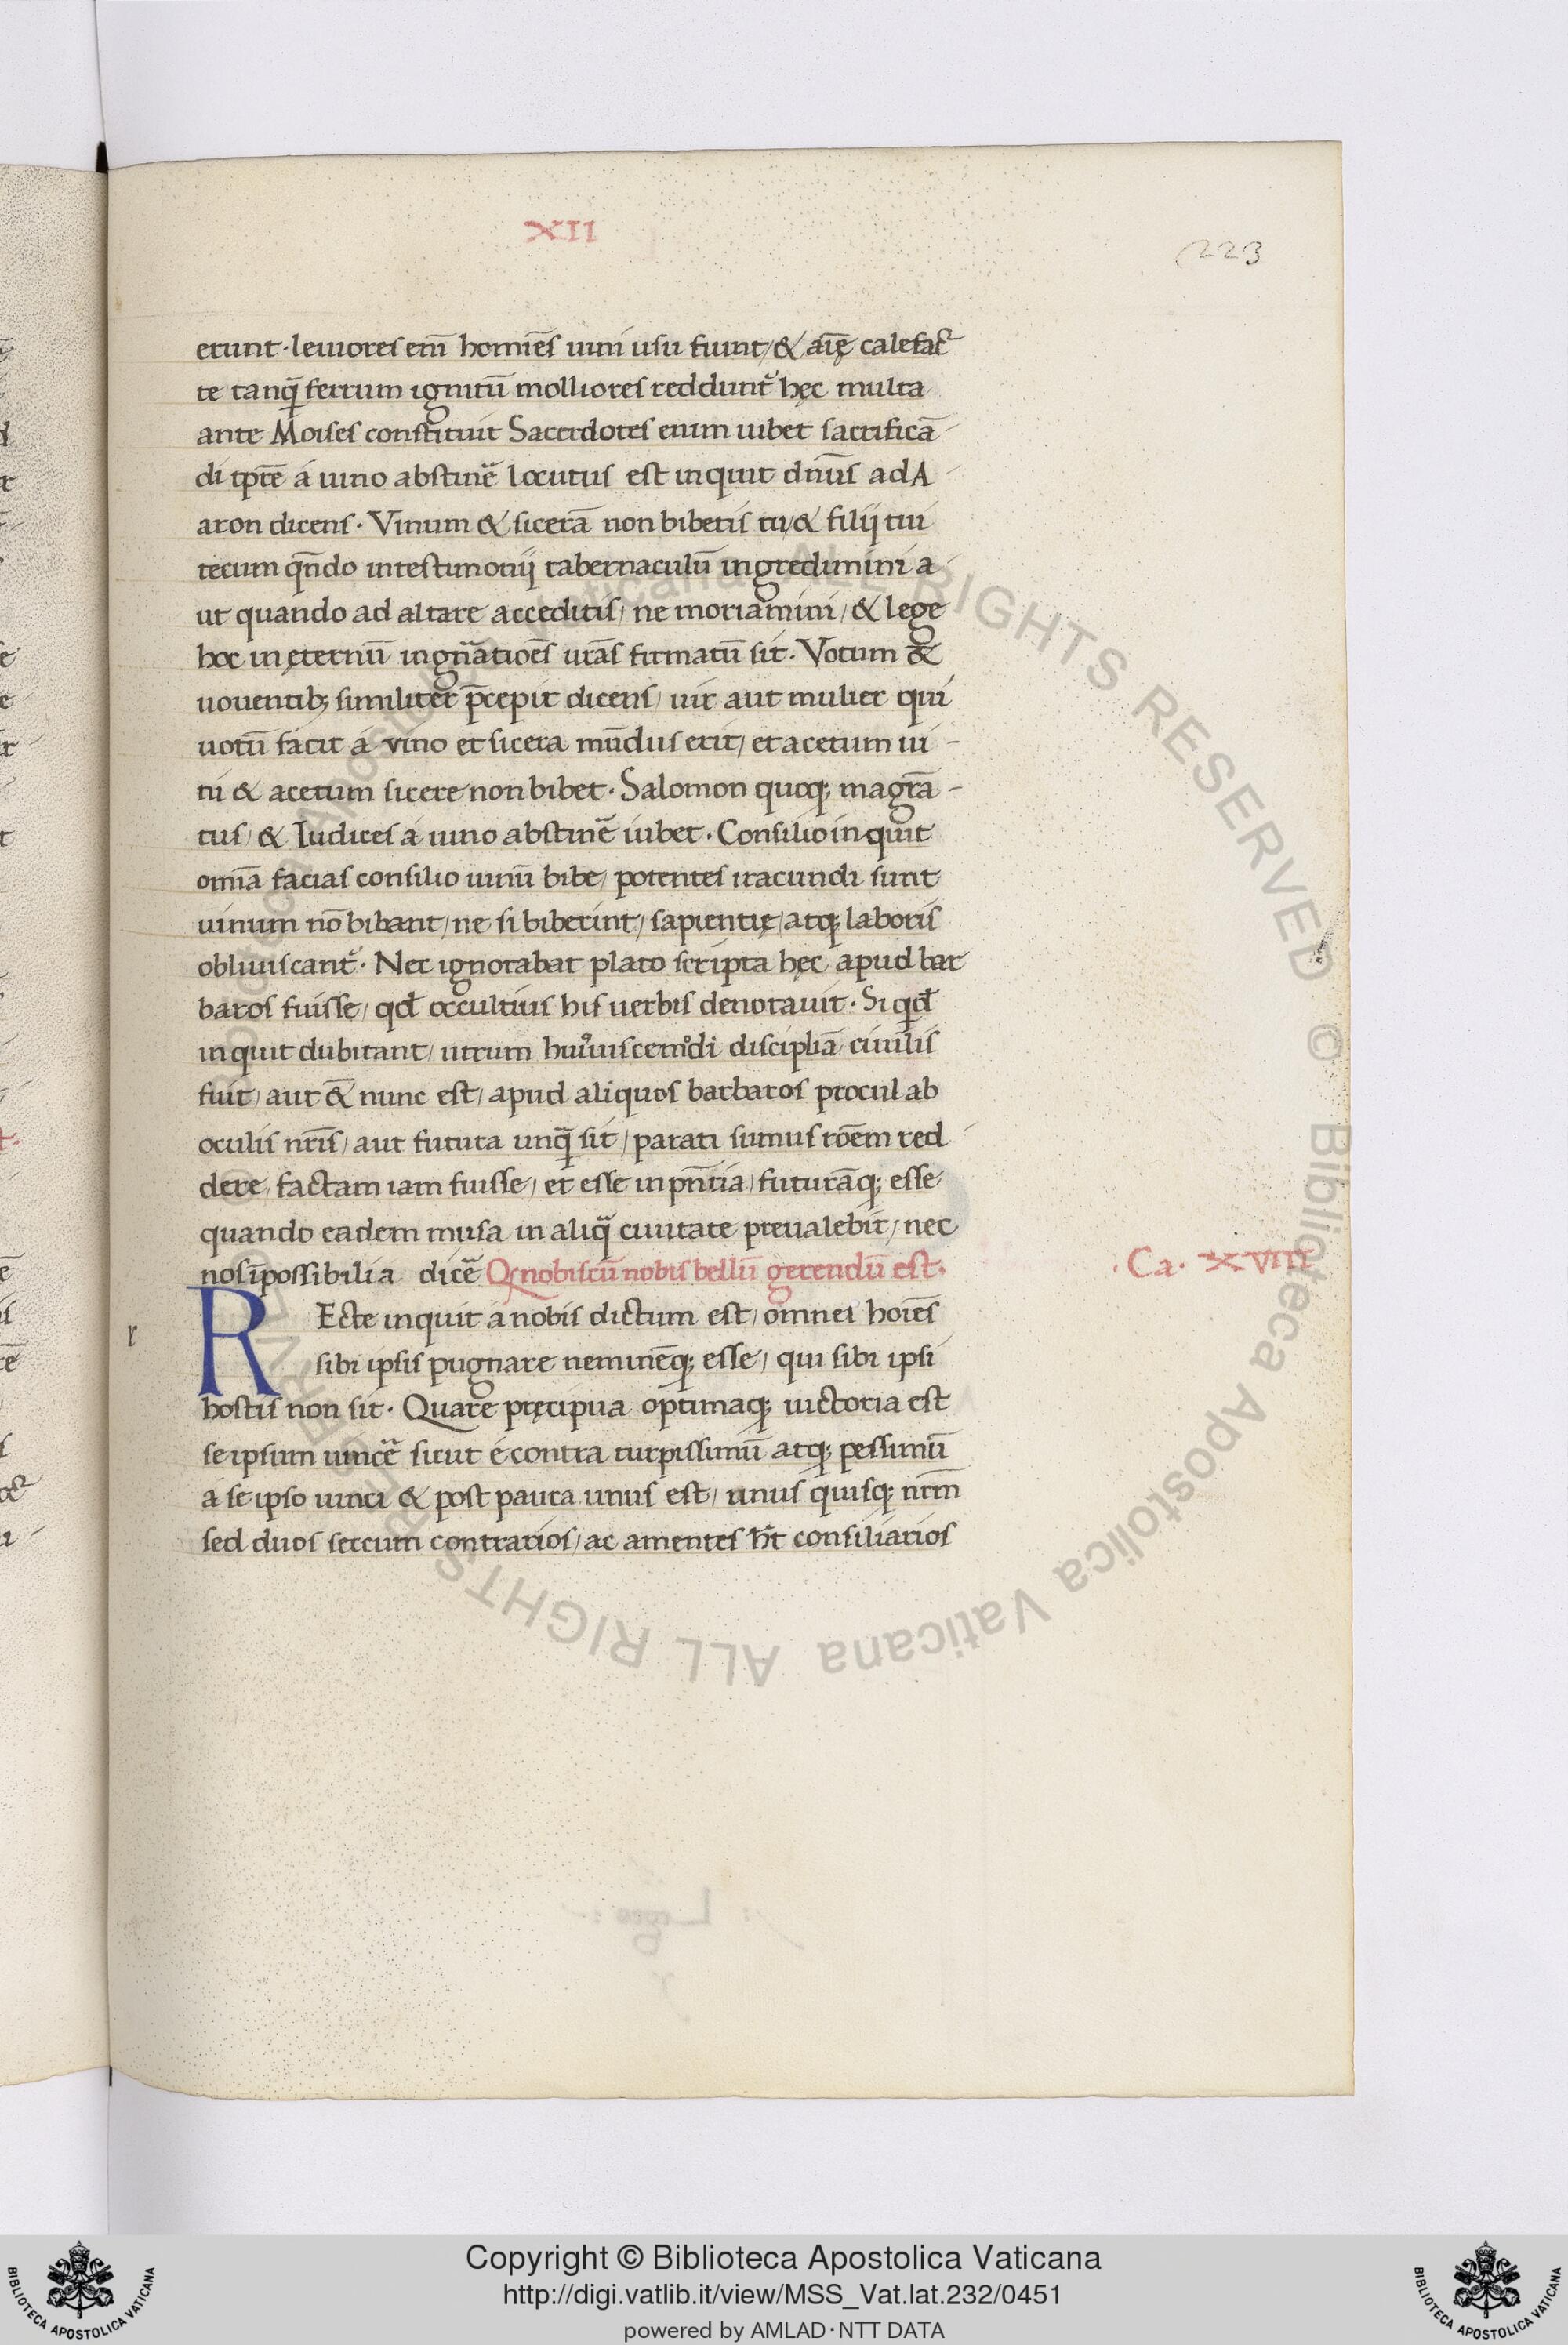 XII
223
erunt · leuiores eni̅ homi̅es uini usu fiunt / & ai̅ę calefac̅
te tanq̅ ferrum ignitu̅ molliores reddunt̃ hęc multa
ante Moises constituit Sacerdotes enim iubet sacrifica̅ -
di tp̅re á uino abstine̅ locutus est inquit dn̅us ad A -
aron dicens · Vinum & sicera̅ non bibetis tu / & filij tui
tecum qn̅do in testimonij tabernaculu̅ ingredimini a -
ut quando ad altare acceditis / ne moriamini / & lege
hoc in ęternu̅ in gn̅atioe̅s ura̅s firmatu̅ sit · Votum &
uouentib; similiter p̅cepit dicens / uir aut mulier qui
uotu̅ facit á vino et sicera mu̅dus erit / et acetum ui -
ni & acetum sicere non bibet · Salomon quoq; magra̅ -
tus / & Iudices á uino abstine̅ iubet · Consilio inquit
omi̅a facias consilio uinu̅ bibe / potentes iracundi sunt
uinum no̅ bibant / ne si biberint / sapientię / atq; laboris
obliuiscant̃ · Nec ignorabat plato scripta hęc apud bar
baros fuisse / qd̅ occultius his uerbis denotauit · Si qd̅
inquit dubitant / utrum huiuiscemo̅di discipli̅a ciuilis
fuit / aut &̅ nunc est / apud aliquos barbaros procul ab
oculis nr̅is / aut futura unq̅ sit / parati sumus roe̅m red -
dere / factam iam fuisse / et esse in pn̅tia / futura̅q; esse
quando eadem musa in aliq̅ ciuitate preualebit / nec
nos i̅possibilia dice̅ Q nobiscu̅ nobis bellu̅ gerendu̅ est.
Ca. XVIII
r
REcte inquit á nobis dictum est / omnei hoie̅s
sibi ipsis pugnare nemine̅q; esse / qui sibi ipsi
hostis non sit · Quare pręcipua optimaq; uictoria est
se ipsum uince̅ sicut é contra turpissimu̅ atq; pessimu̅
á se ipso uinci & post pauca unus est / unus quisq; nr̅m
sed duos secum contrarios / ac amentes h̅t consiliarios
Copyright © Biblioteca Apostolica Vaticana
http://digi.vatlib.it/view/MSS_Vat.lat.232/0451
powered by AMLAD·NTT DATA